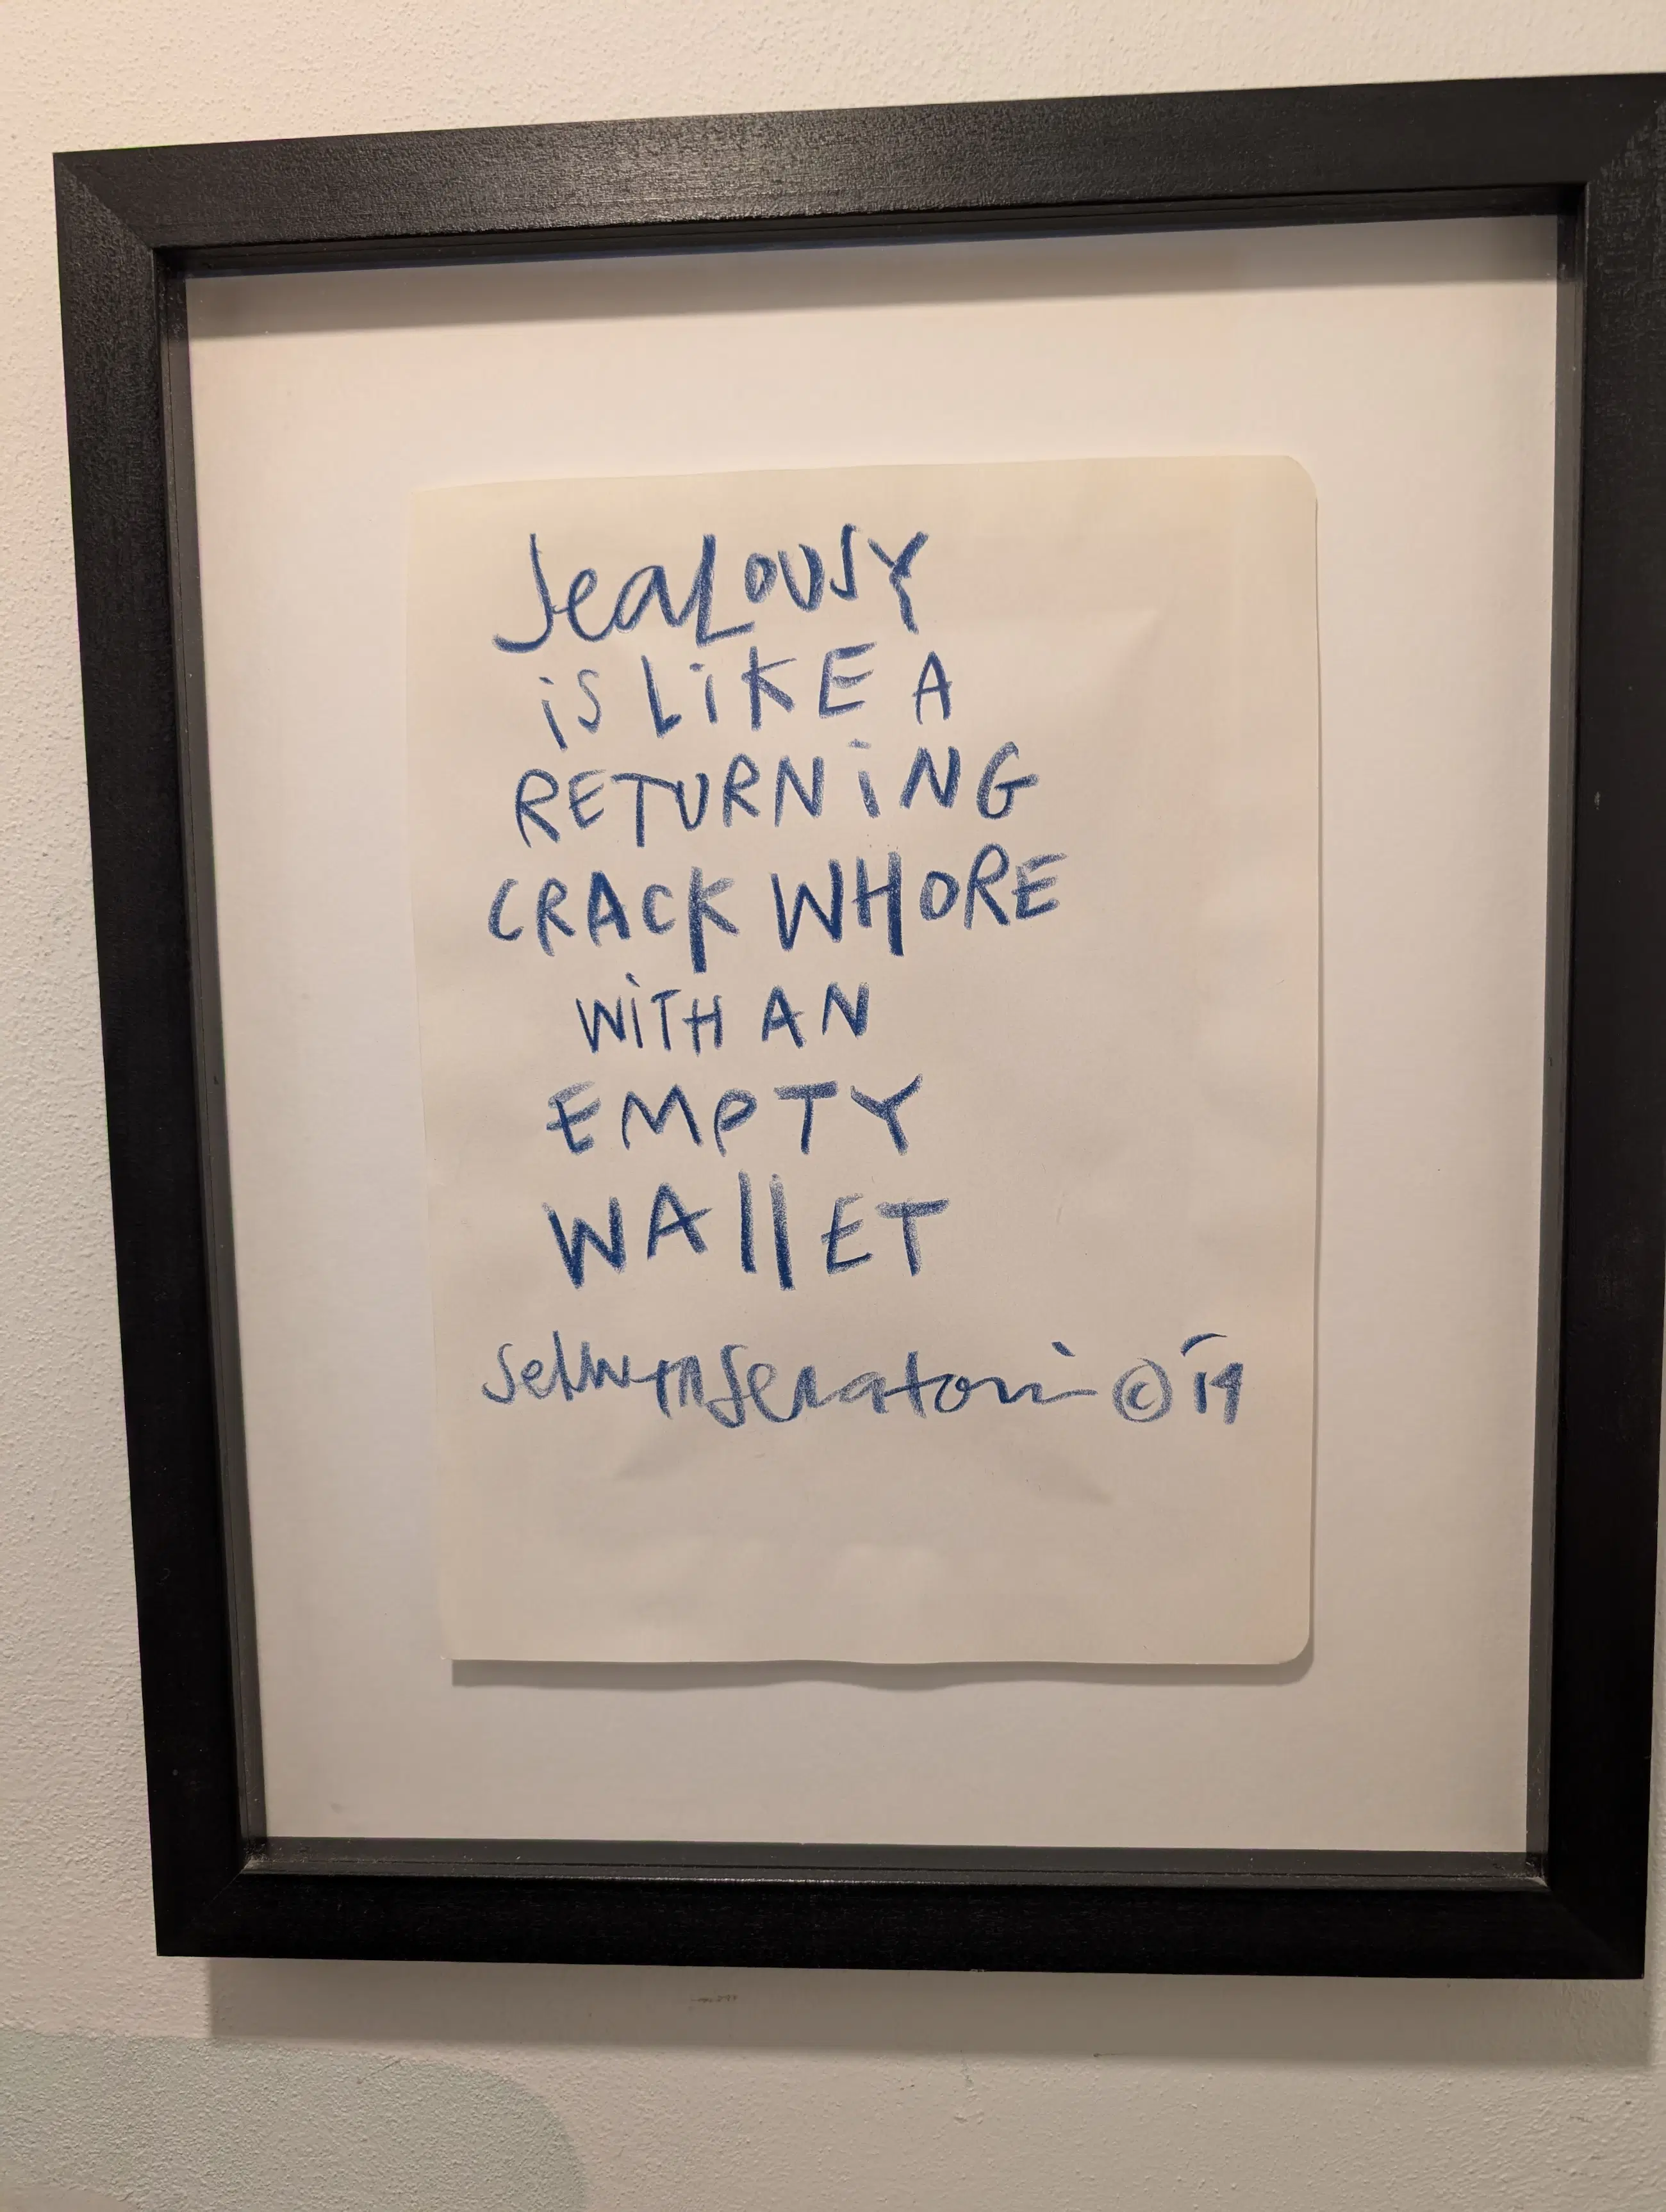 JeaLousy
is LiKE A
RETURNiNG
CRACK WHORE
WiTH AN
EMPTY
WAllET
Selwyn Senatori © '19